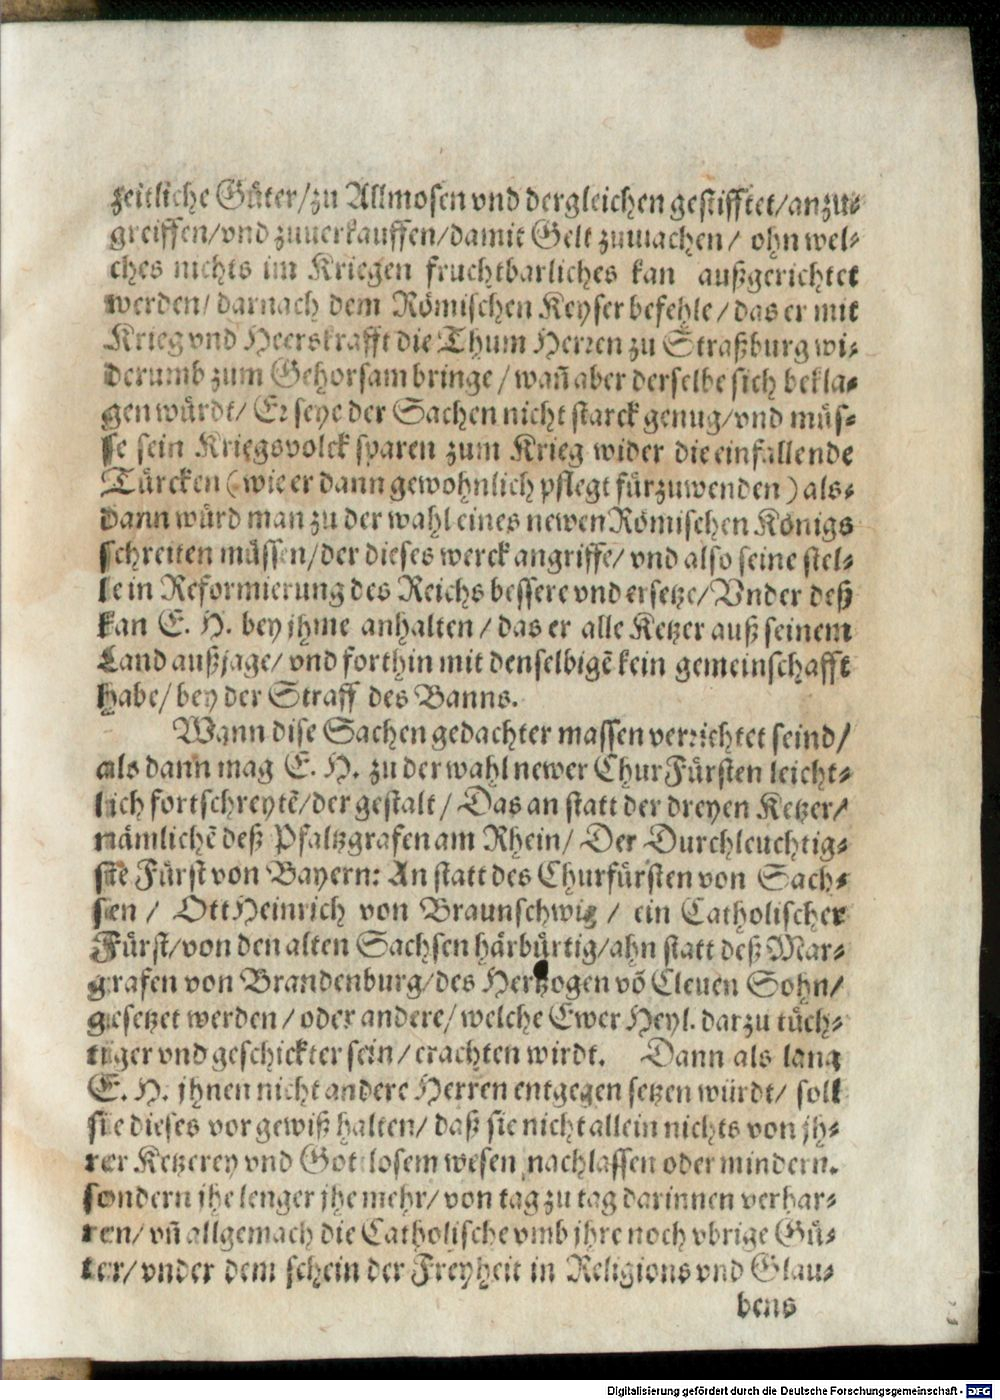 zeitliche Güter/zu Allmosen vnd dergleichen gestifftet/anzu-
greiffen/vnd zuuerkauffen/damit Gelt zumachen/ ohn wel-
ches nichts im Kriegen fruchtbarliches kan außgerichtet
werden/ darnach dem Römischen Keyser befehle/das er mit
Krieg vnd Heerskrafft die Thum Herren zu Straßburg wi-
derumb zum Gehorsam bringe/wañ aber derselbe sich bekla-
gen würdt/ Er seye der Sachen nicht starck genug/vnd müs-
se sein Kriegsvolck sparen zum Krieg wider die einfallende
Türcken (wie er dann gewohnlich pflegt fürzuwenden) als-
dann würd man zu der wahl eines newen Römischen Königs
schreiten müssen/der dieses werck angriffe/ vnd also seine stel-
le in Reformierung des Reichs bessere vnd ersetze/Vnder deß
kan E. H. bey jhme anhalten/das er alle Ketzer auß seinem
Land außjage/ vnd forthin mit denselbigẽ kein gemeinschafft
habe/bey der Straff des Banns.
Wann dise Sachen gedachter massen verrichtet seind/
als dann mag E. H. zu der wahl newer ChurFürsten leicht-
lich fortschreytẽ/der gestalt/ Das an statt der dreyen Ketzer/
nämlichẽ deß Pfaltzgrafen am Rhein/ Der Durchleuchtig-
ste Fürst von Bayern: An statt des Churfürsten von Sach-
sen/ OttHeinrich von Braunschwig/ ein Catholischer
Fürst/von den alten Sachsen härbürtig/ahn statt deß Mar-
grafen von Brandenburg/des Hertzogen võ Cleuen Sohn/
gesetzet werden/oder andere/welche Ewer Heyl. darzu tüch-
tiger vnd geschickter sein/erachten wirdt. Dann als lang
E. H. jhnen nicht andere Herren entgegen setzen würdt/ soll
sie dieses vor gewiß halten/ daß sie nicht allein nichts von jh-
rer Ketzerey vnd Gottlosem wesen nachlassen oder mindern.
sondern jhe lenger jhe mehr/von tag zu tag darinnen verhar-
ren/vñ allgemach die Catholische vmb jhre noch vbrige Gü-
ter/vnder dem schein der Freyheit in Religions vnd Glau-
bens
Digitalisierung gefördert durch die Deutsche Forschungsgemeinschaft - DFG